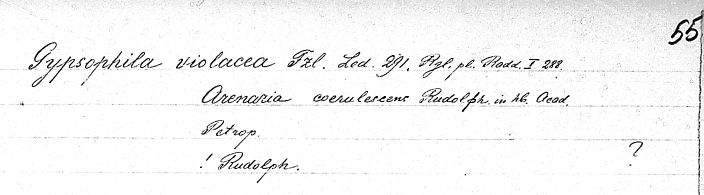 55
Gypsophila violacea Fzl. Led. 291. Rgl. pl. Radd. I 288.
Arenaria coerulescens Rudolph. in hb. Acad.
Petrop.
! Rudolph. ?